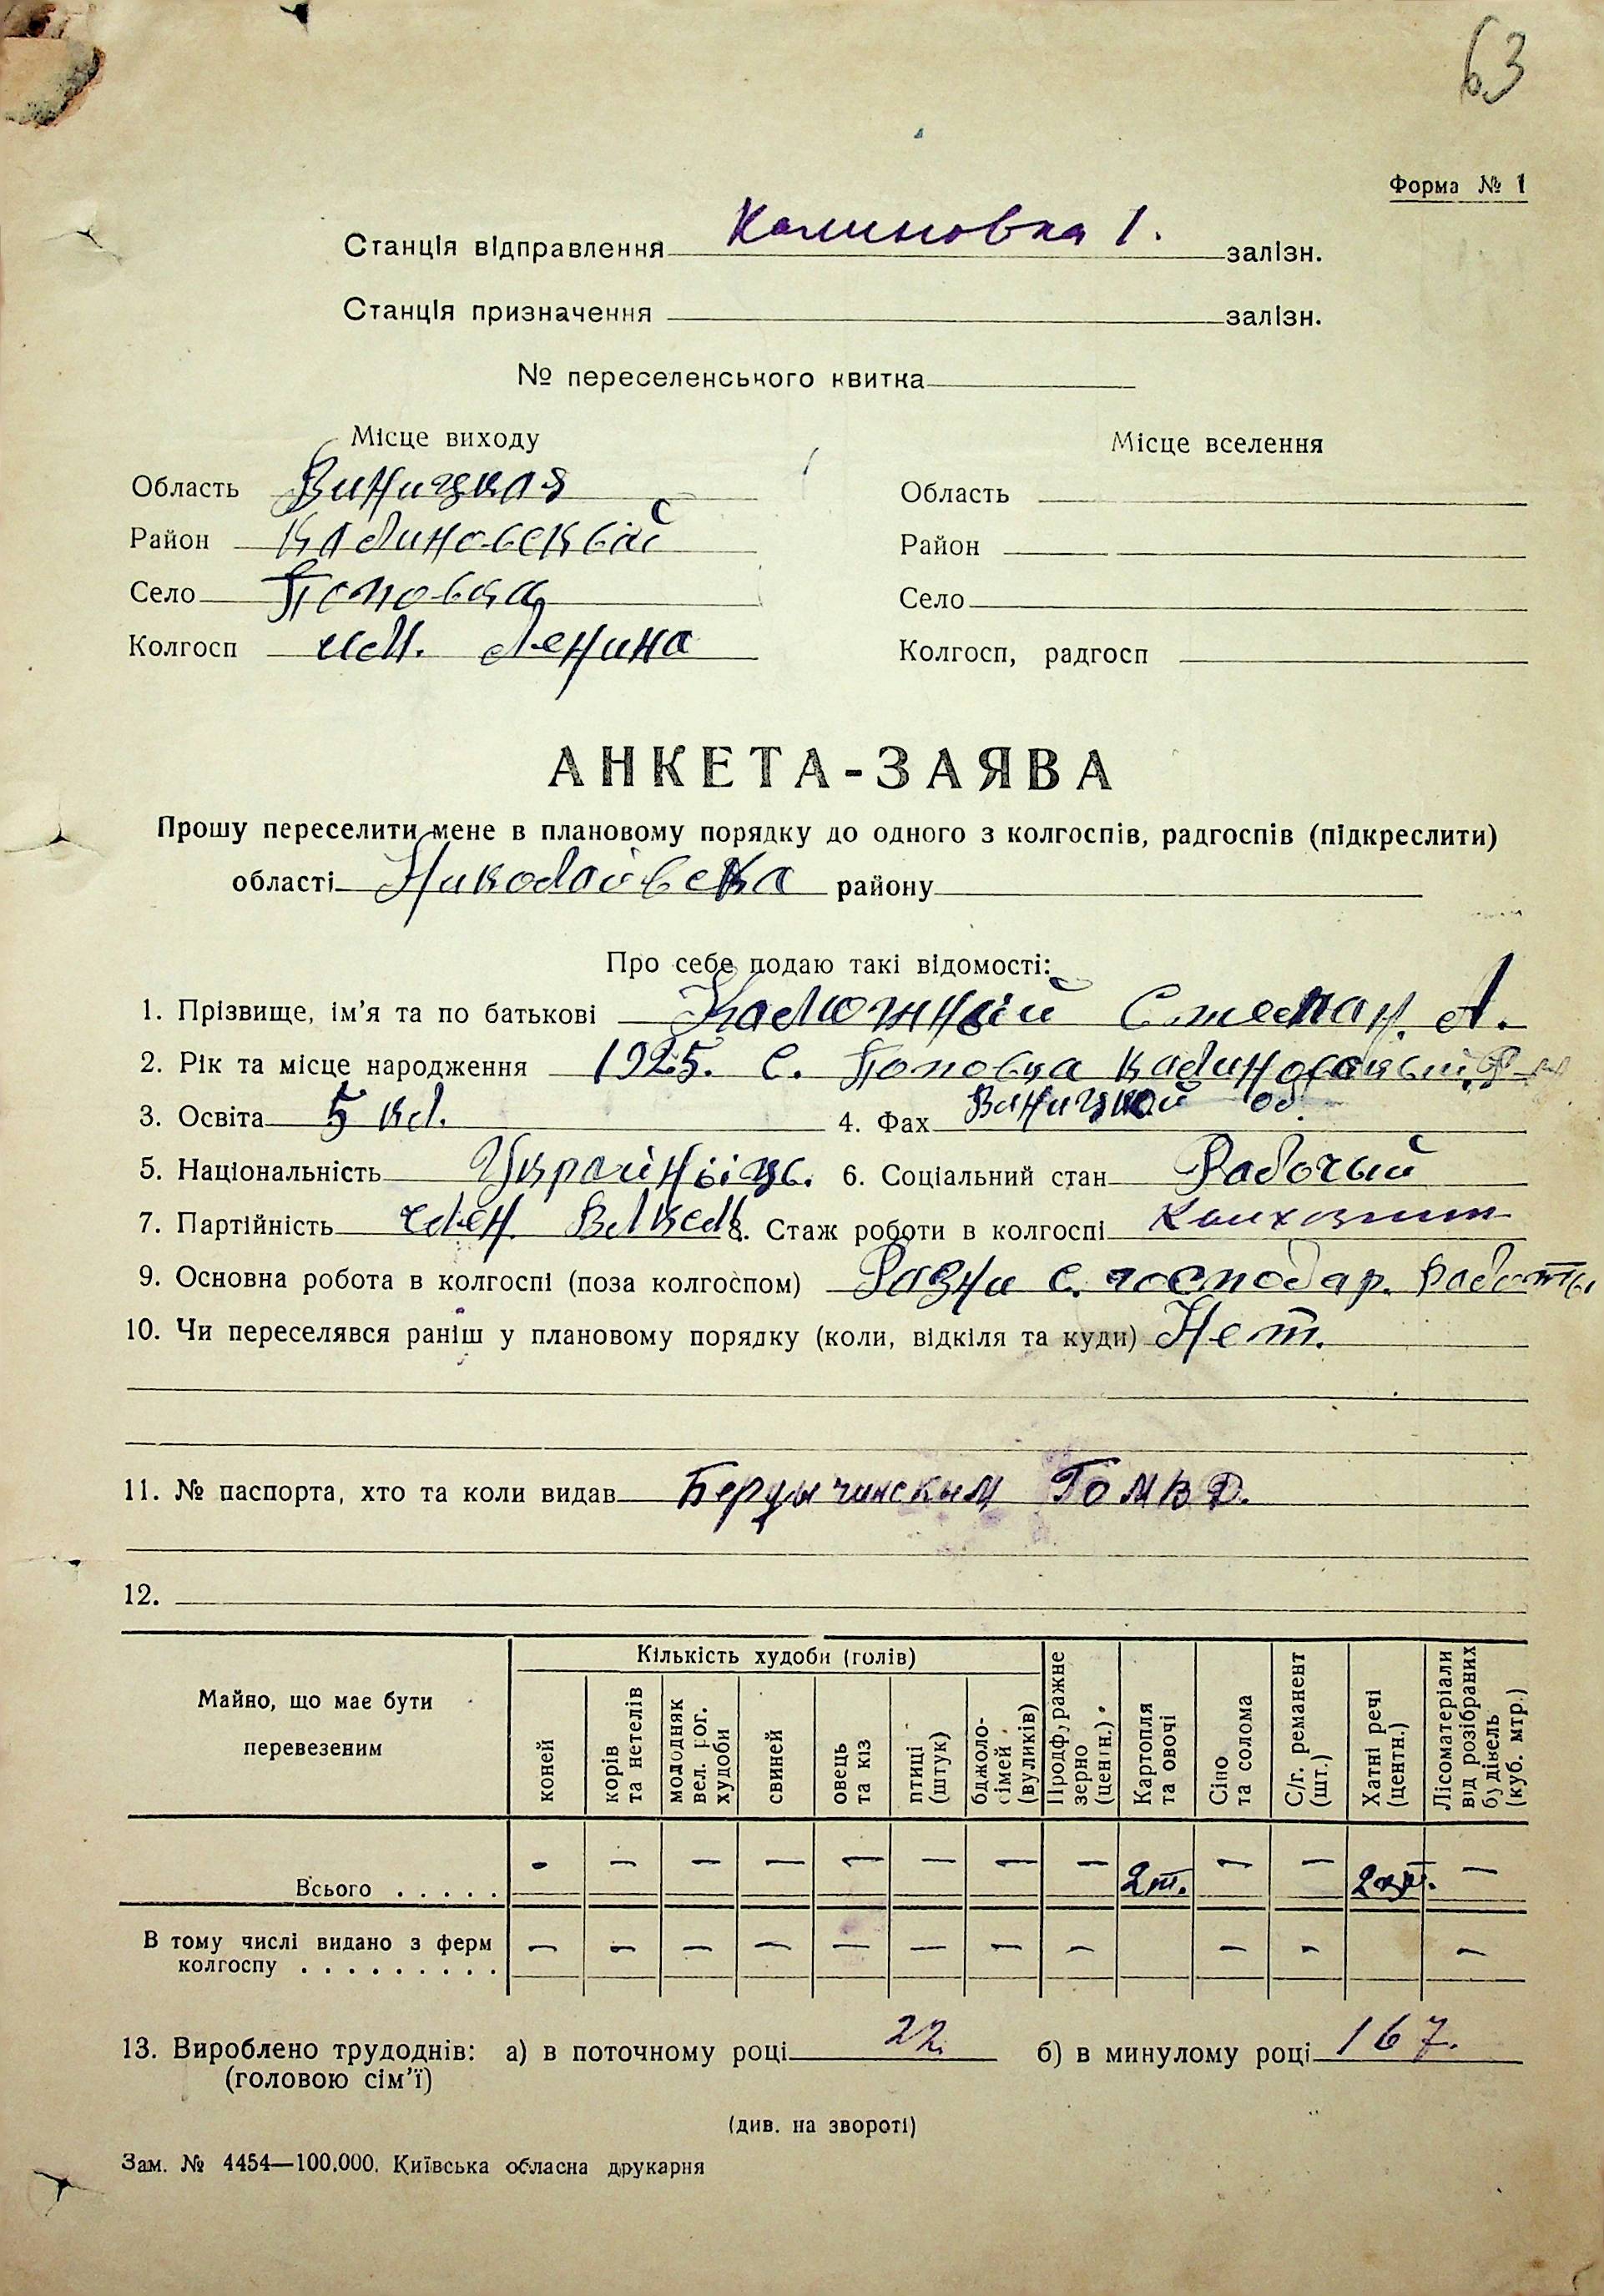 63
Форма № 1
Станція відправлення Калиновка 1. залізн.
Станція призначення залізн.
№ переселенського квитка
Місце виходу Місце вселення
Область Виницкая Область
Район Калиновский Район
Село Поповка Село
Колгосп им. Ленина Колгосп, радгосп
АНКЕТА-ЗАЯВА
Прошу переселити мене в плановому порядку до одного з колгоспів, радгоспів (підкреслити)
області Николаївска району
Про себе подаю такі відомості:
1. Прізвище, ім'я та по батькові Калюжный Степан. А.
2. Рік та місце народження 1925. с. Поповка Калиновский р-н
3. Освіта 5 кл. 4. Фах Виницкой об.
5. Національність 6. Соціальний стан Рабочый
7. Партійність член. 8. Стаж роботи в колгоспі
9. Основна робота в колгоспі (поза колгоспом) Разни с. господар. работы
10. Чи переселявся раніш у плановому порядку (коли, відкіля та куди) Нет.
11. № паспорта, хто та коли видав Бердычинскым ГоМВД.
12.
Майно, що має бути перевезеним
Кількість худоби (голів)
коней
корів та нетелів
молодняк вел. рог. худоби
свиней
овець та кіз
птиці (штук)
бджоло-сімей (вуликів)
Продфуражне зерно (центн.)
Картопля та овочі
Сіно та солома
С/г. реманент (шт.)
Хатні речі (центн.)
Лісоматеріали від розібраних будівель (куб. мтр.)
Всього . . . . . - - - - - - - - 2т. - - -
В тому числі видано з ферм
колгоспу . . . . . . . . . - - - - - - - - - - -
13. Вироблено трудоднів: а) в поточному році 22 б) в минулому році 167.
(головою сім'ї)
(див. на звороті)
Зам. № 4454—100.000. Київська обласна друкарня